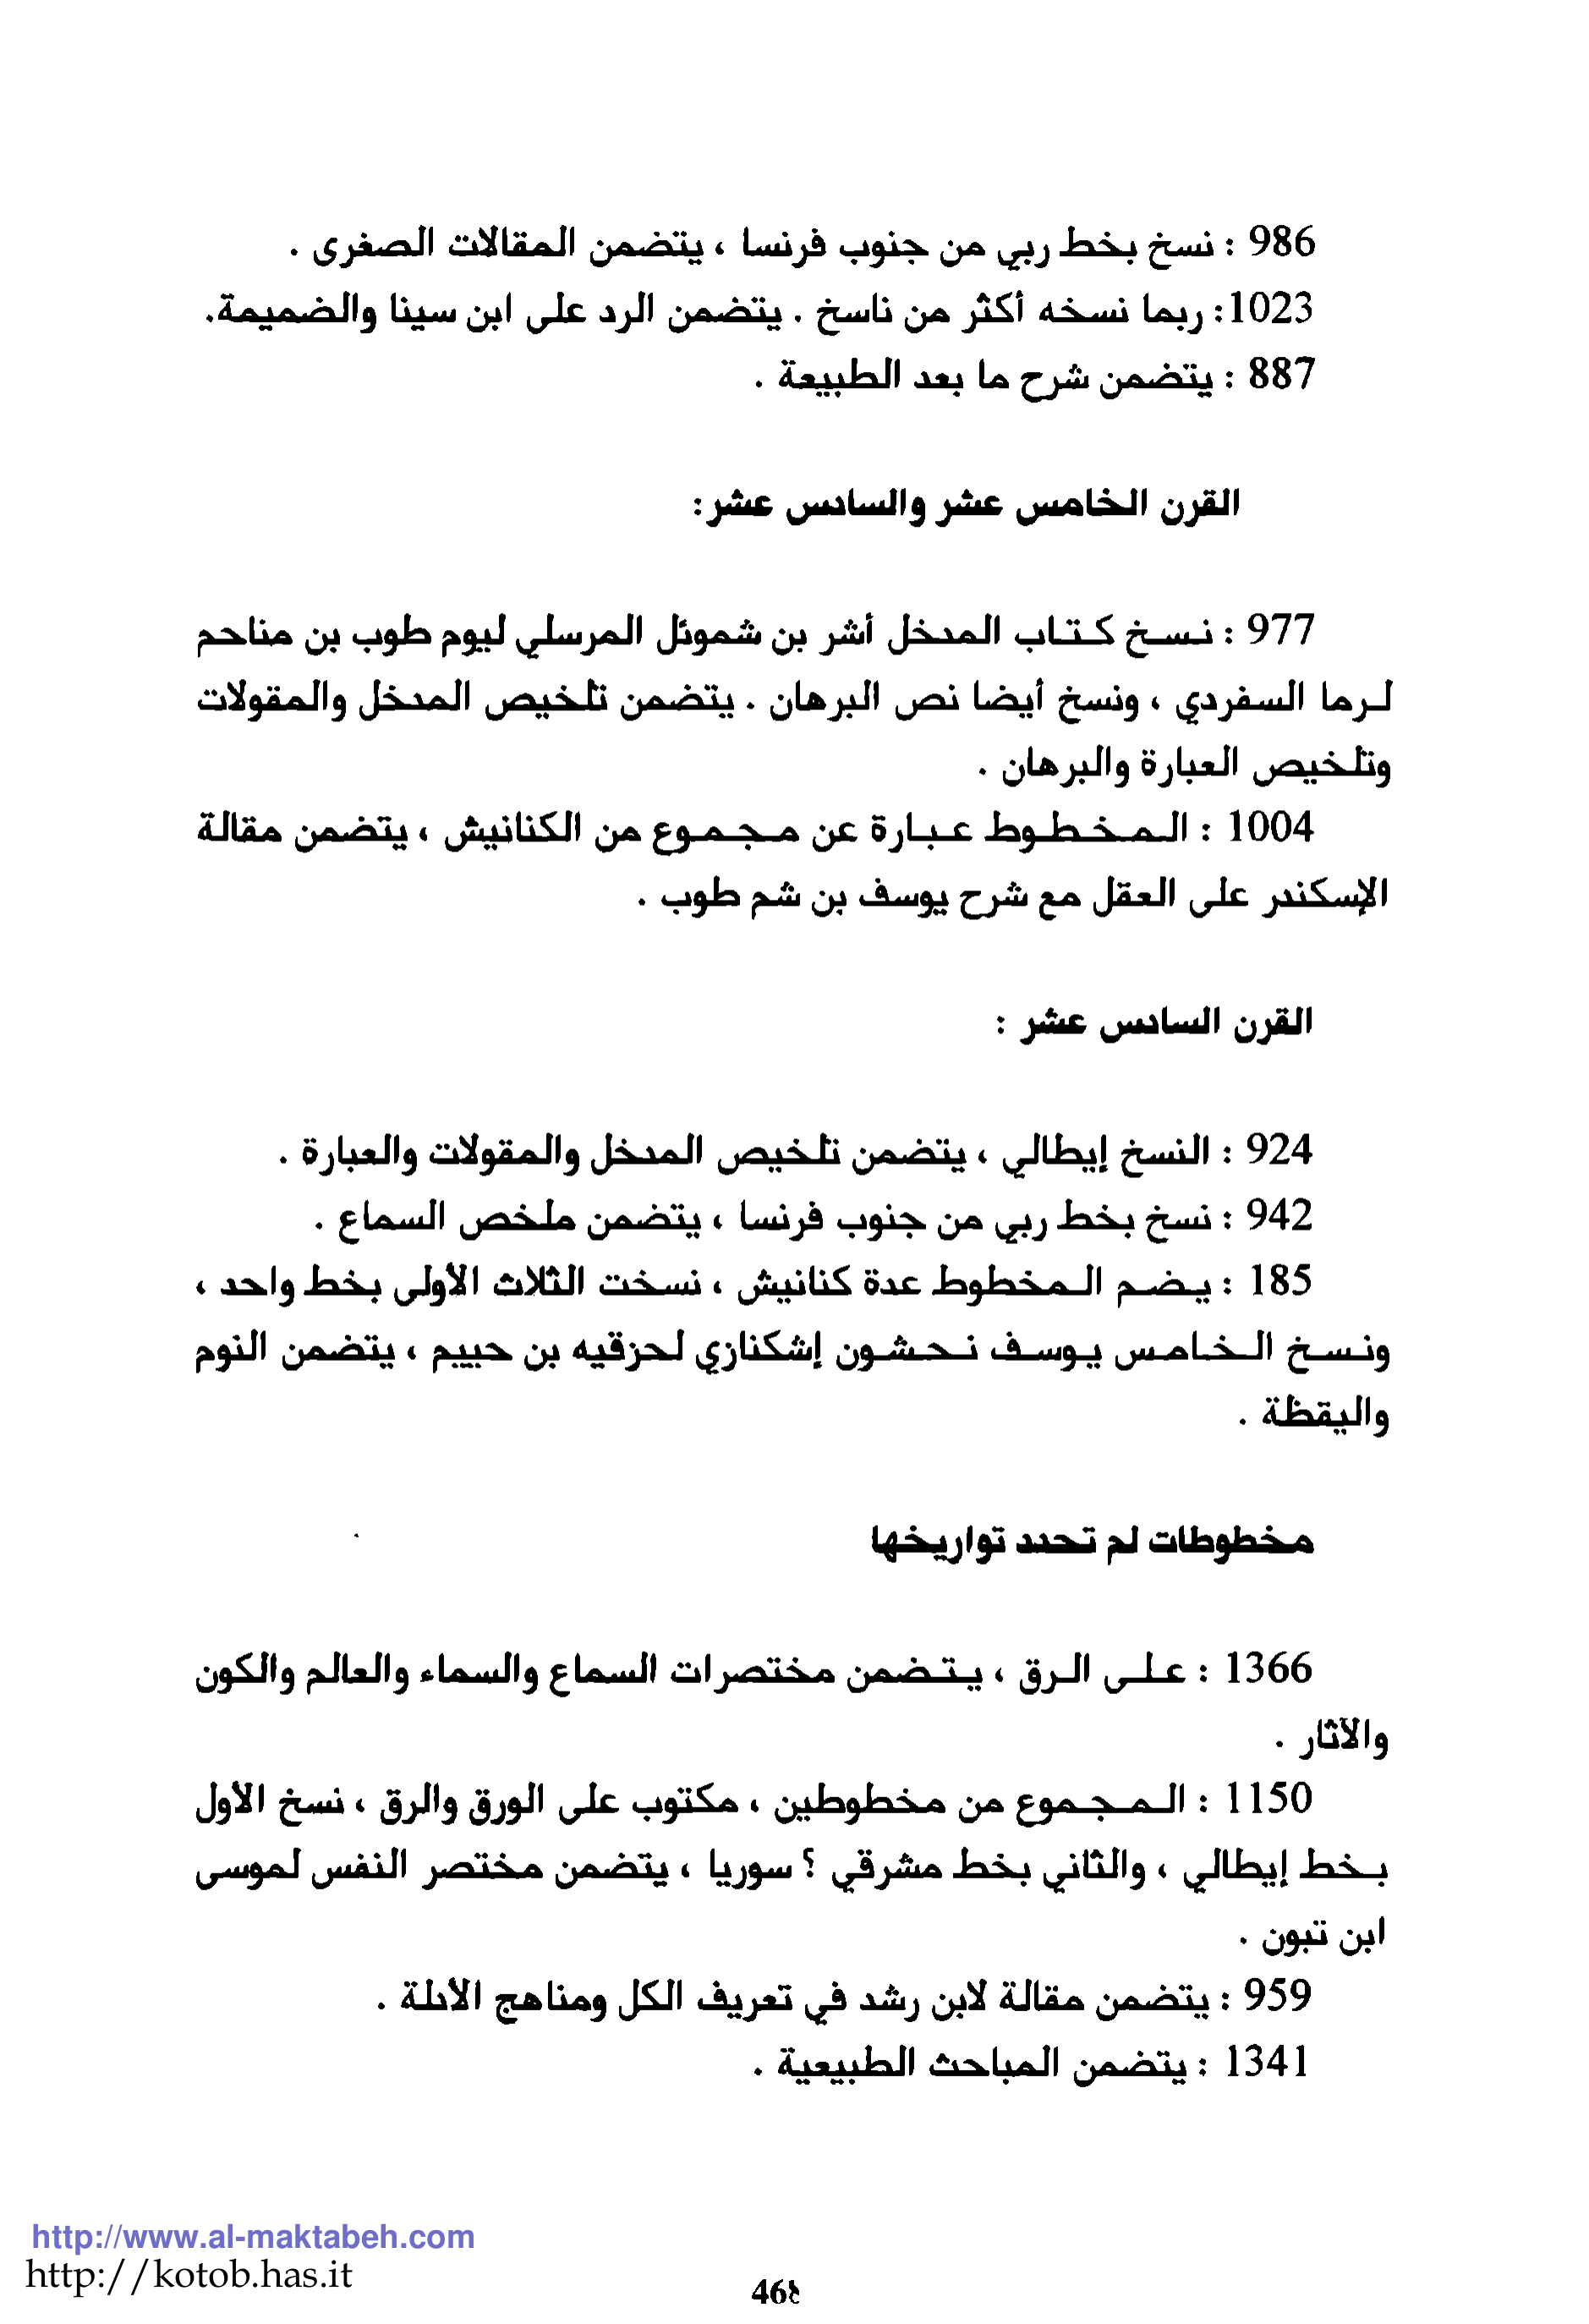 986 : نسخ بخط ربي من جنوب فرنسا ، يتضمن المقالات الصغرى .
1023: ربما نسخه أكثر من ناسخ . يتضمن الرد على ابن سينا والضميمة.
887 : يتضمن شرح ما بعد الطبيعة .
القرن الخامس عشر والسادس عشر:
977 : نسخ كتاب المدخل أشر بن شموئل المرسلي ليوم طوب بن مناحم
لرما السفردي ، ونسخ أيضا نص البرهان . يتضمن تلخيص المدخل والمقولات
وتلخيص العبارة والبرهان .
1004 : المخطوط عبارة عن مجموع من الكنانيش ، يتضمن مقالة
الإسكندر على العقل مع شرح يوسف بن شم طوب .
القرن السادس عشر :
924 : النسخ إيطالي ، يتضمن تلخيص المدخل والمقولات والعبارة .
942 : نسخ بخط ربي من جنوب فرنسا ، يتضمن ملخص السماع .
185 : يضم المخطوط عدة كنانيش ، نسخت الثلاث الأولى بخط واحد ،
ونسخ الخامس يوسف نحشون إشكنازي لحزقيه بن حييم ، يتضمن النوم
واليقظة .
مخطوطات لم تحدد تواريخها
1366 : على الرق ، يتضمن مختصرات السماع والسماء والعالم والكون
والآثار .
1150 : المجموع من مخطوطين ، مكتوب على الورق والرق ، نسخ الأول
بخط إيطالي ، والثاني بخط مشرقي ؟ سوريا ، يتضمن مختصر النفس لموسى
ابن تبون .
959 : يتضمن مقالة لابن رشد في تعريف الكل ومناهج الأدلة .
1341 : يتضمن المباحث الطبيعية .
http://www.al-maktabeh.com
http://kotob.has.it
468